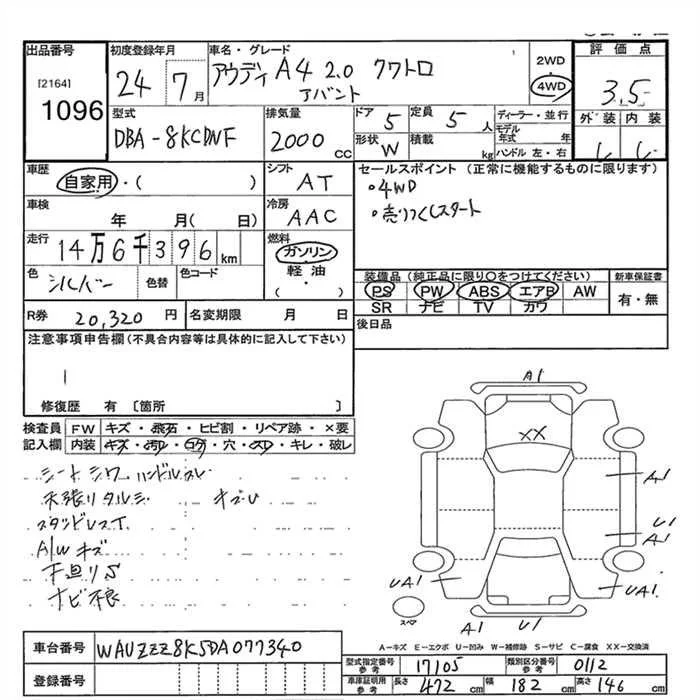 出品番号
[2164]
1096
初度登録年月
24 7月
車名・グレード
アウディ A4 2.0 クワトロ
アバント
2WD
4WD
評価点
3.5
外装 内装
型式
DBA-8KCDNF
排気量
2000 cc
ドア 5
形状 W
定員 5人
積載 kg
ディーラー・並行
モデル年式 年
ハンドル 左・右
車歴
自家用・( )
シフト AT
車検 年 月( 日)
冷房 AAC
走行 14万6千396km
燃料 ガソリン
軽油・
( )
色 シルバー 色替 色コード
R券 20,320円
名変期限 月 日
セールスポイント(正常に機能するものに限ります)
・4WD
・売りつくしスタート
装備品(純正品に限り○をつけてください)
PS PW ABS エアB AW
SR ナビ TV カワ
新車保証書
有・無
後日品
注意事項申告欄(不具合内容等は具体的に記入して下さい)
修復歴 有〔箇所 〕
検査員記入欄
FW キズ・飛石・ヒビ割・リペア跡・×要
内装 キズ・汚れ・コゲ・穴・スレ・キレ・破レ
シートシワ ハンドルスレ
天張りタルミ キズU
スタッドレスT
A/W キズ
下廻りS
ナビ不良
A1
XX
A1
U1
A1
UA1
UA1
A1
U1
スペア
A-キズ E-エクボ U-凹み W-補修跡 S-サビ C-腐食 XX-交換済
車台番号 WAUZZZ8K5DA077340
登録番号
型式指定番号参考 17105
類別区分番号参考 0112
車庫証明用参考 長さ 472cm 幅 182cm 高さ 146cm